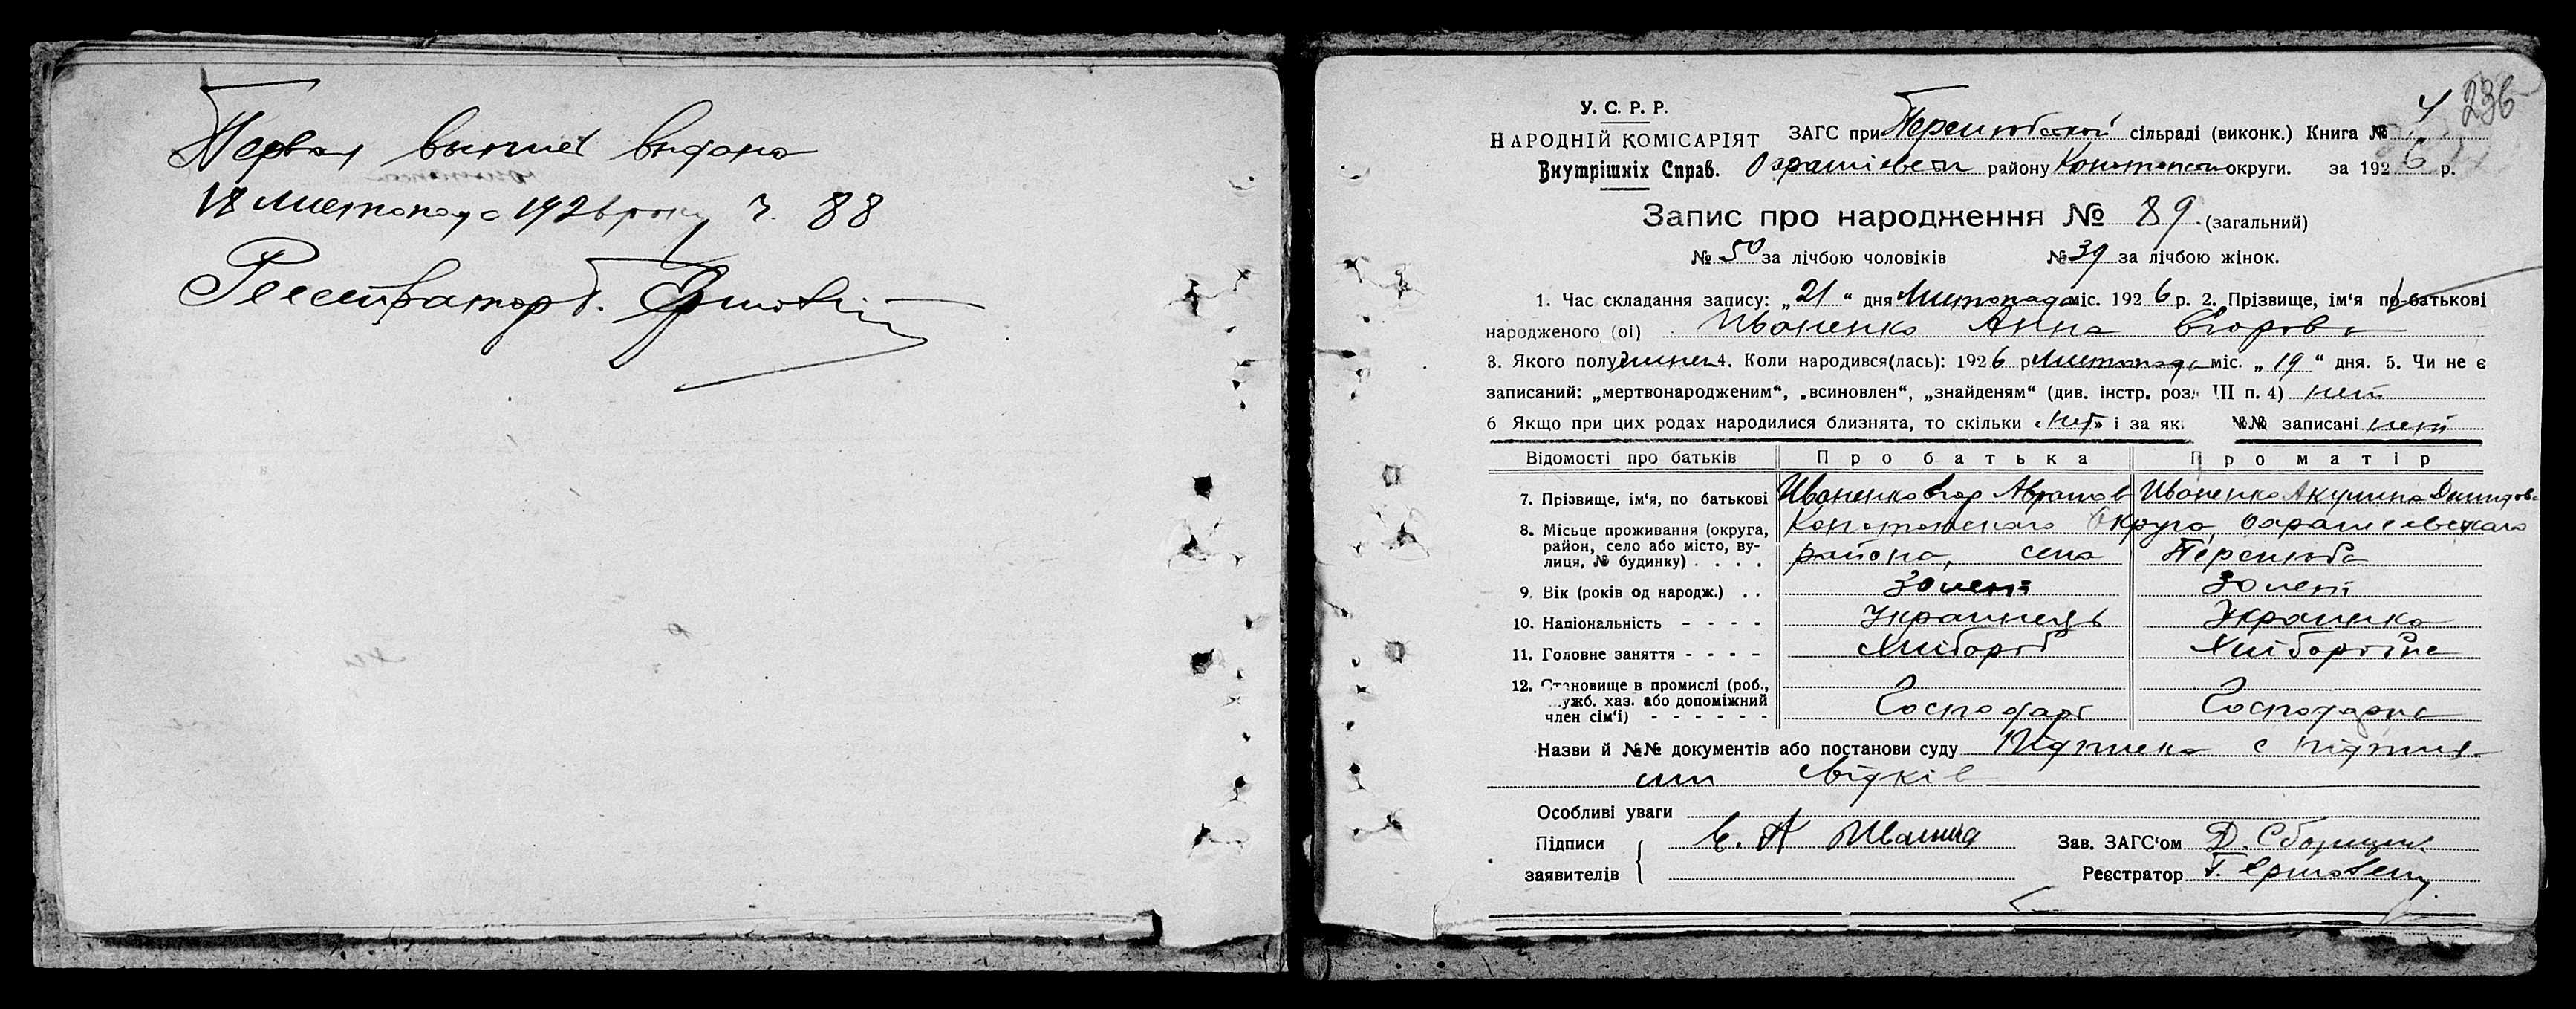 Первая выпись выдана
18 Листопада 1926 року ч. 88
Реестраторъ.
236
У. С. Р. Р.
НАРОДНІЙ КОМІСАРІЯТ
Внутрішніх Справ.
ЗАГС при Перелюбской сільраді (виконк.) Книга № 4
району Конотопськ округи. за 1926 р.
Запис про народження № 89. (загальний)
№ 50 за лічбою чоловіків № 39 за лічбою жінок.
1. Час складання запису: „21“ дня Листопада міс. 1926 р. 2. Прізвище, ім'я по-батькові
народженого (ої) Иваненко Анна Егорова
3. Якого полу 4. Коли народився(лась): 1926 р Листопада міс. „19“ дня. 5. Чи не є
записаний: „мертвонародженим“, „всиновлен“, „знайденям“ (див. інстр. розд. III п. 4) нет
6 Якщо при цих родах народилися близнята, то скільки «нет» і за як. №№ записані нет
Відомості про батьків Про батька Про матір
7. Прізвище, ім'я, по батькові Иваненко Егор Аврамов Иваненко Акулина Демидова
8. Місьце проживання (округа, район, село або місто, вулиця, № будинку) . . . . Конотопского Округа,
района, села Перелюба
9. Вік (років од народж.) . . 30 лет 30 лет
10. Національність - - - - Украинець Украинка
11. Головне заняття - - - - Хлібороб Хліборобка
12. Становище в промислі (роб., служб. хаз. або допоміжний член сім'ї) - - - - - - Господарь Господарка
Назви й №№ документів або постанови суду Підписка с підписями
свідків
Особливі уваги
Підписи заявителів Е. А
Зав. ЗАГС'ом Д.
Реєстратор Г.